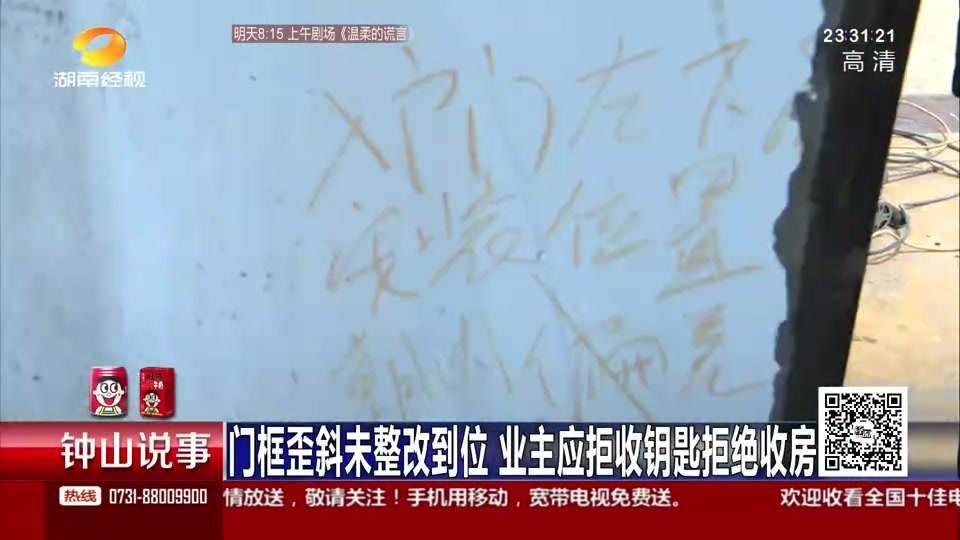 明天8:15 上午剧场《温柔的谎言》
23:31:21
湖南经视
高清
入户门左下
位置
偏差
钟山说事
门框歪斜未整改到位 业主应拒收钥匙拒绝收房
热线 0731-88009900
情放送，敬请关注！手机用移动，宽带电视免费送。 欢迎收看全国十佳电